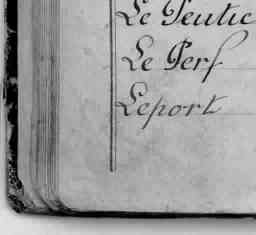 Le Peutic
Le Perf
Leport